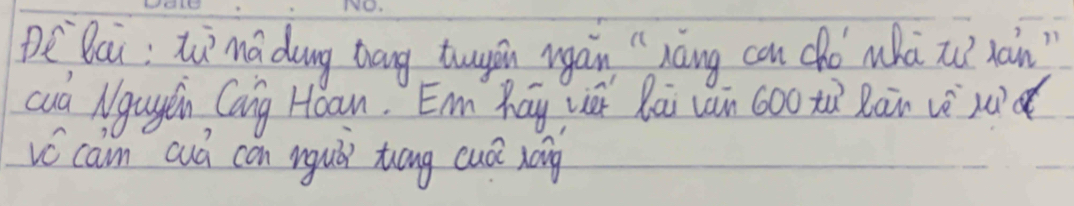 No.
Đề bài: từ nội dung trong truyện ngắn "răng con chó nhà tư sản"
của Nguyễn Công Hoan. Em hãy viết bài văn 600 từ bàn về sự
vô cảm của con người trong cuộc sống